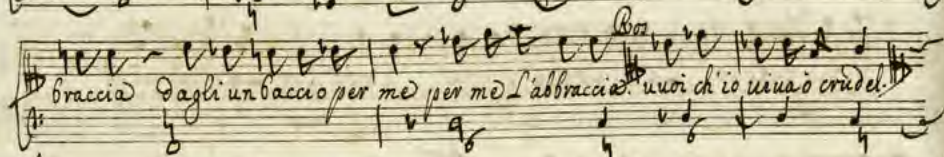 Ros
braccia dagli un baccio per me per me L'abbraccia. uuoi ch'io uiua ò crudel.
6 6